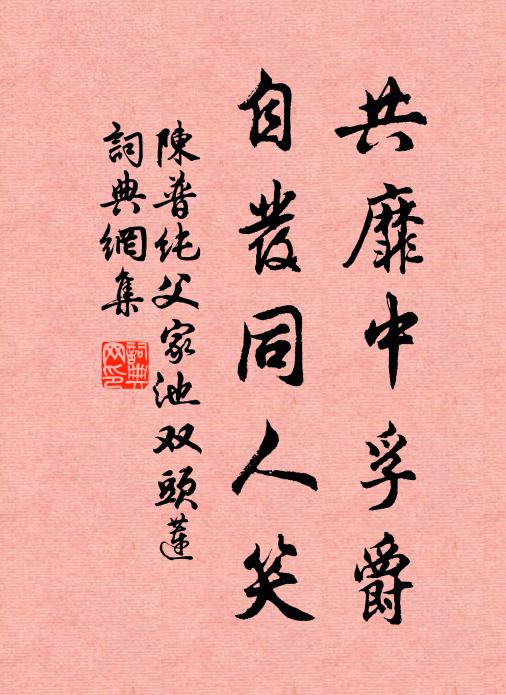 共靡中孚爵
自發同人笑
陳普純父家池双頭蓮
詞典網集
詞典网印